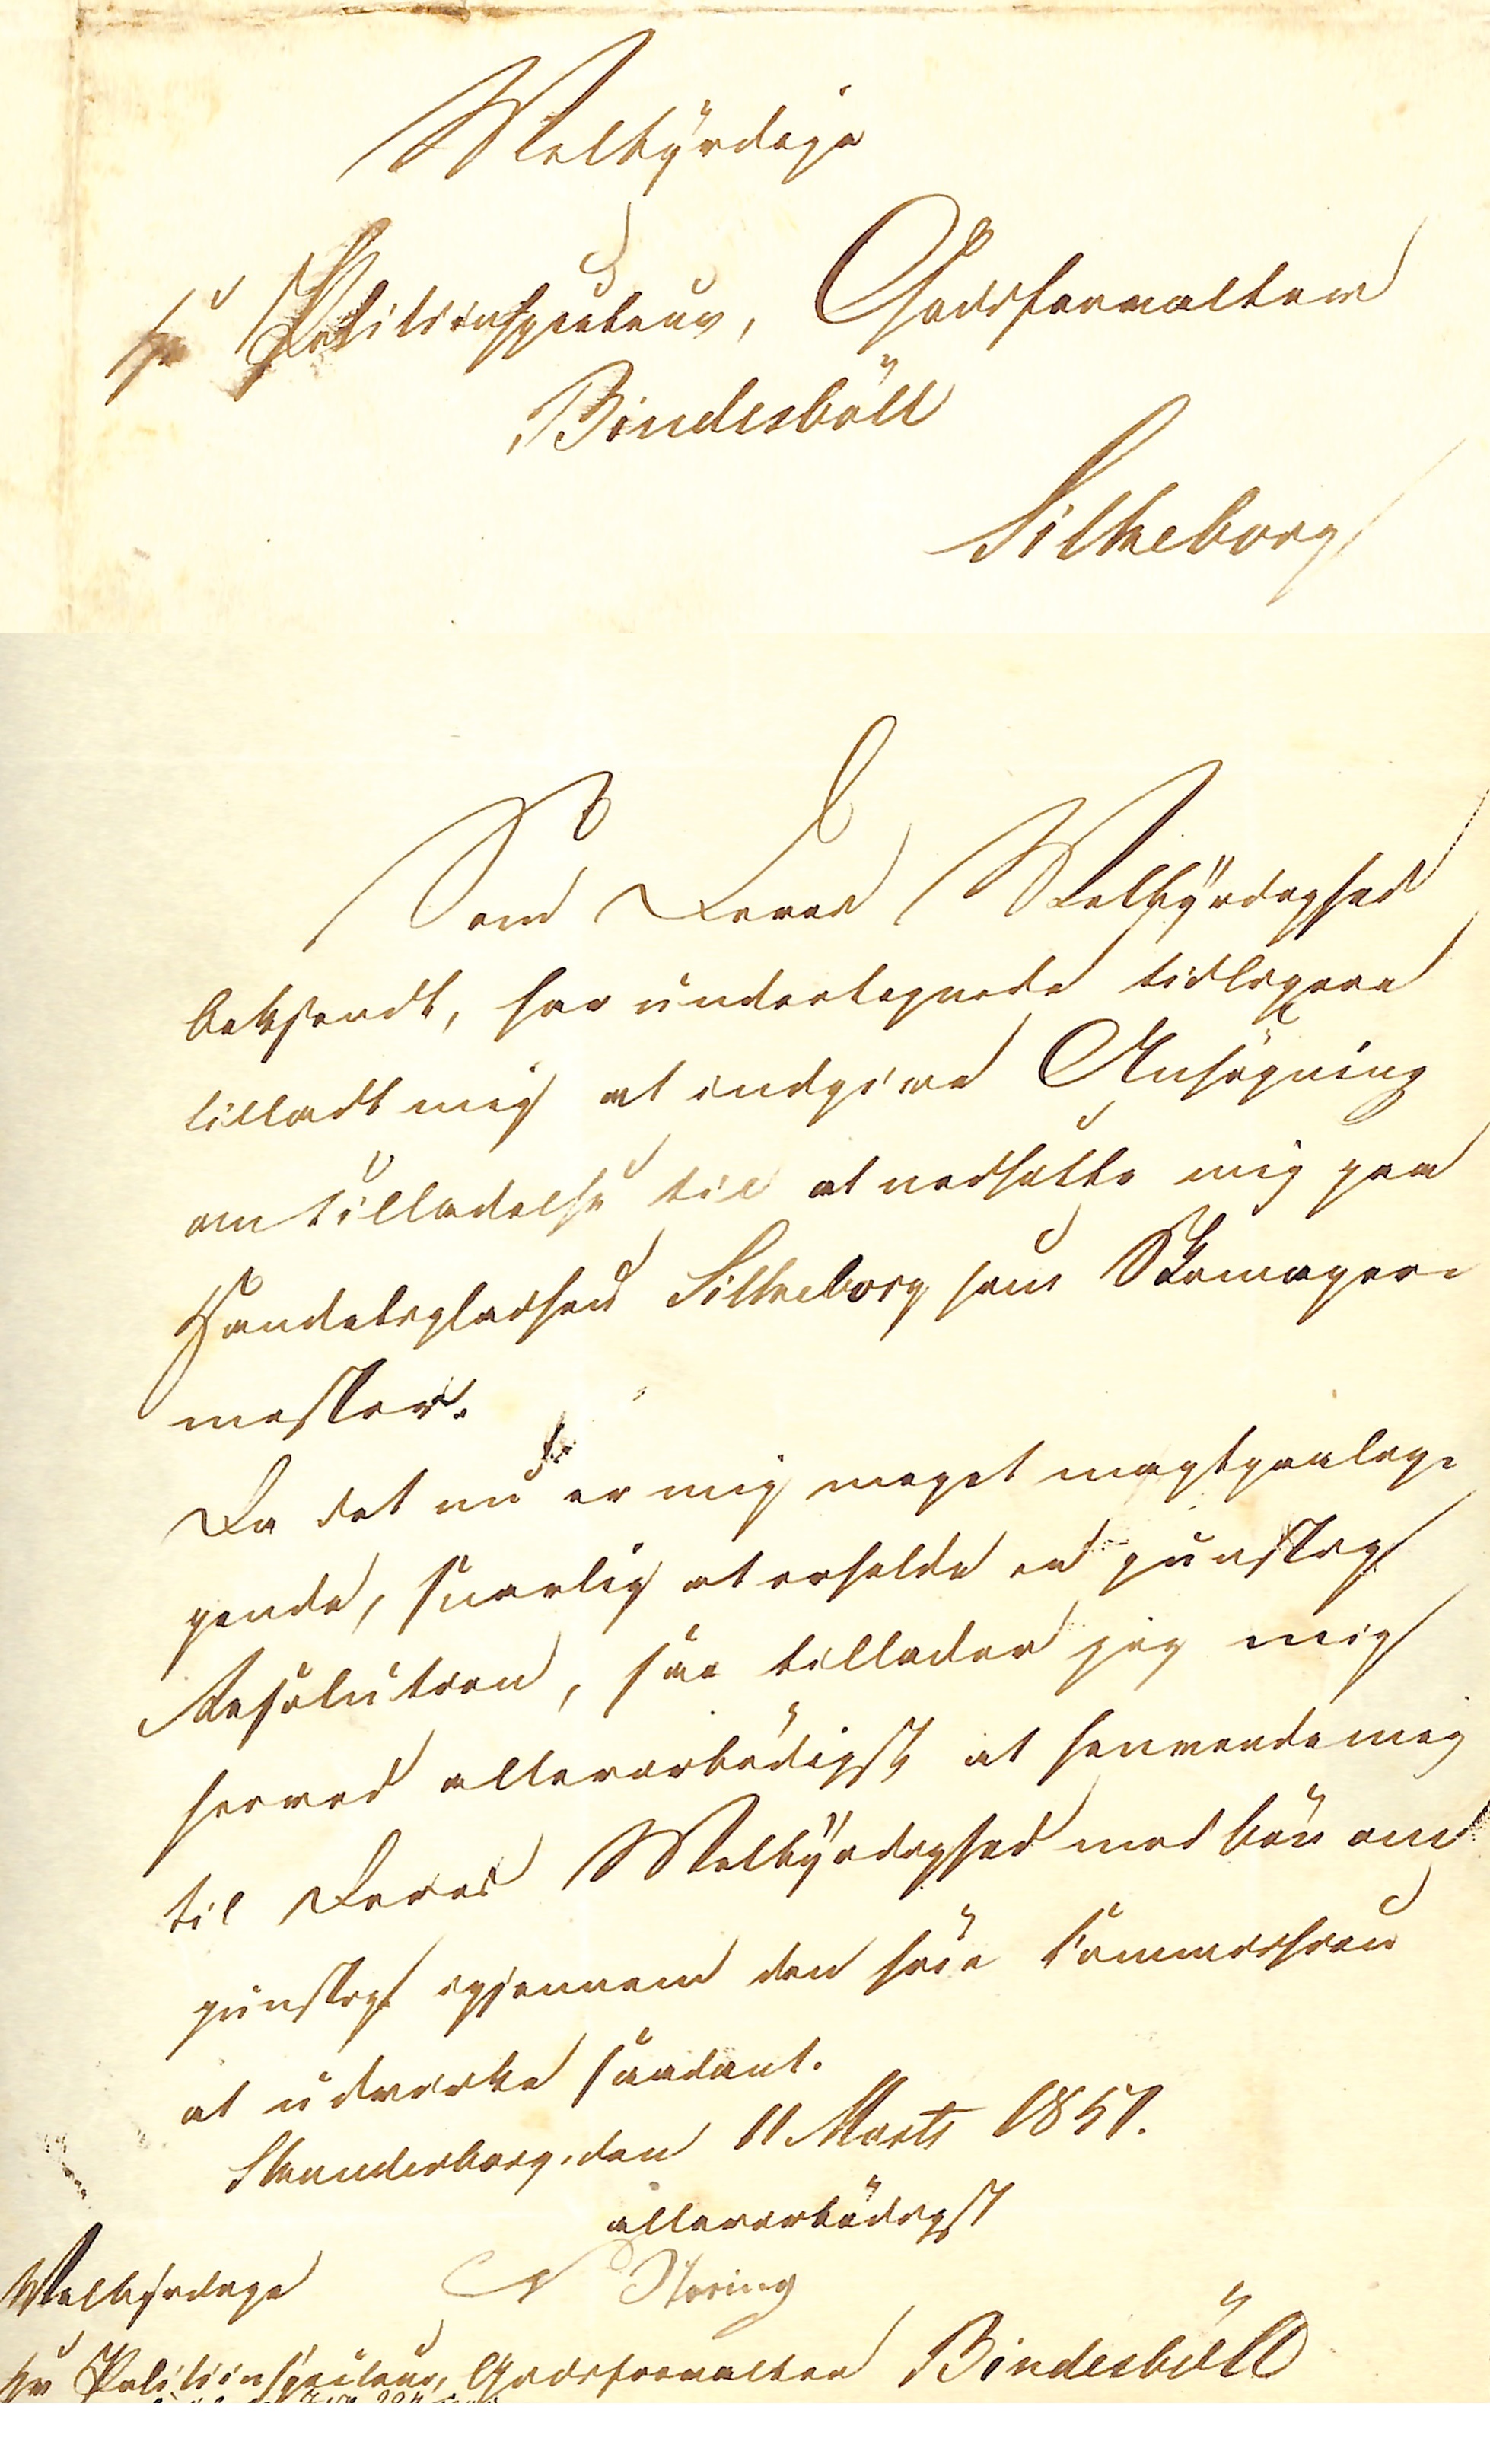 Velbyrdige
Hr Politiinspecteur, Godsforvalter
Bindesböll
Silkeborg
Som Deres Velbyrdighed
bekjendt, har undertegnede tidligere
tilladt mig at indgive Ansøgning
om Tilladelse til at nedsætte mig paa
Handelspladsen Silkeborg som Skomager-
mester.
Da det nu er mig meget magtpaalig-
gende, snarlig at erholde en gunstig
Resolution, saa tillader jeg mig
herved allerærbødigst at henvende mig
til Deres Velbyrdighed med bön om
gunstigt igjennem den höie Commission
at udvirke saadant.
Skanderborg, den 11 Marts 1851.
allerærbödigst
N
Velbyrdige
Hr Politiinspecteur, Godsforvalter Bindesböll